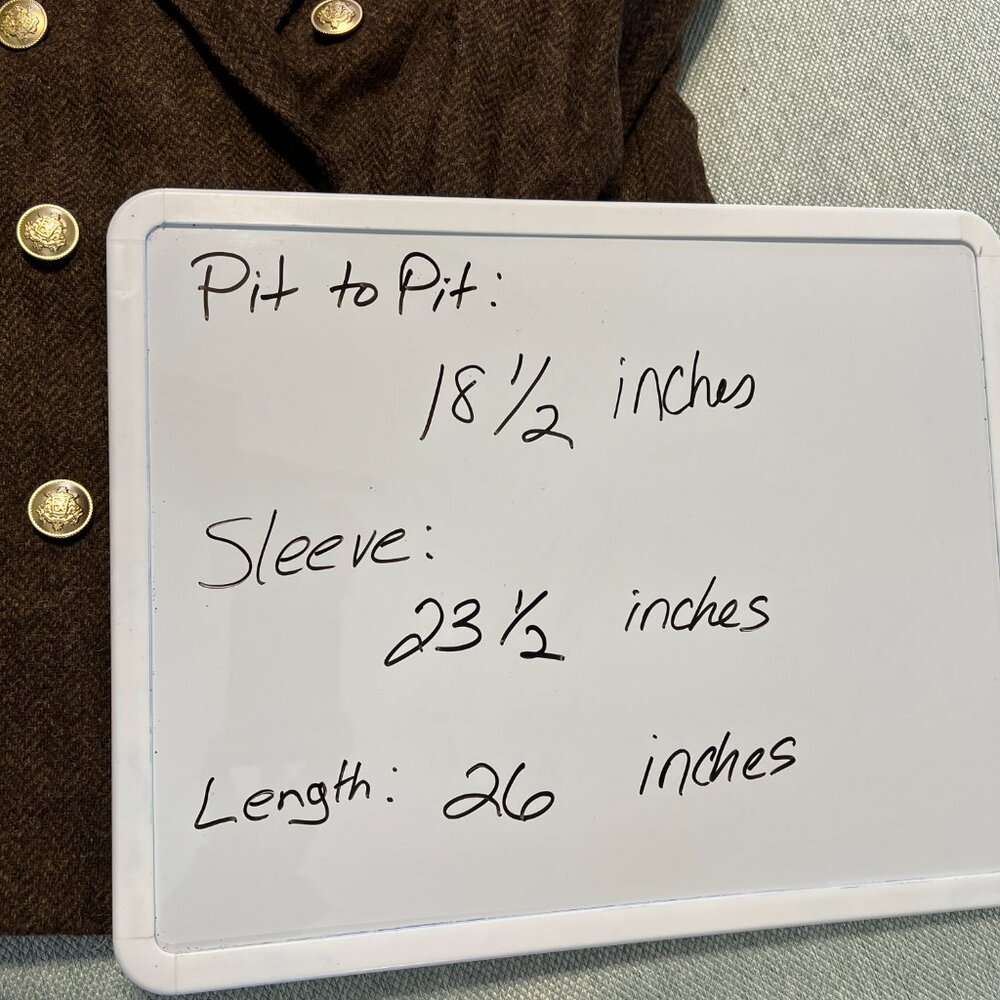 Pit to Pit:
18 1/2 inches
Sleeve:
23 1/2 inches
Length: 26 inches